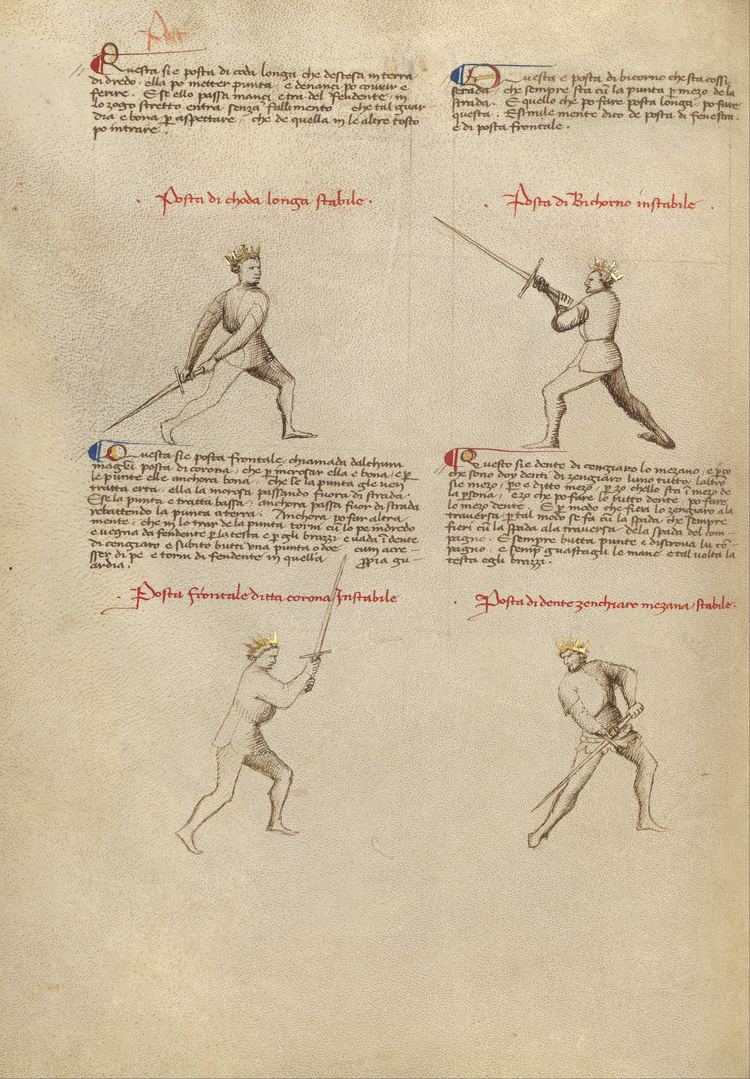 Questa sie posta di coda longa che destesa in terra
di dredo, ella po metter punta, e denanci po courir e
ferire. E se ello passa inanci e tra del fendente, in
lo zogo stretto entra senza fallimento che tal guar
dia e bona p aspettare, che de quella in le altre tosto
po intrare.
Posta di choda longa stabile.
Questa e posta di bicorno che sta cossi
serada, che sempre sta cu la punta p mezo de la
strada. E quello che po fare posta longa, po fare
questa. E simile mente dico de posta di fenestra.
e di posta frontale.
Posta di Bichorno instabile
Questa sie posta frontale, chiamada dalchun
magistri posta di corona, che p incrosar ella e bona, e p
le punte elle anchora bona, che se la punta gle ven
tratta erta, ella la incrosa passando fuora di strada.
E se la punta e tratta bassa, anchora passa fuor di strada
rebattendo la punta a terra. Anchora po far altra
mente, che in lo trar de la punta torni cu lo pe indredo
e uegna da fendente p la testa e p gli brazzi e uada i dente
di cengiaro e subito butti una punta o doe cum acre-
sser di pe e torni di fendente in quella ppia gu
ardia.
Posta frontale ditta corona Instabile
Questo sie dente di cengiaro lo mezano, e pço
che sono doy denti di zengiaro luno tutto, laltro
sie mezo, pço e ditto mezo, p zo chello sta i mezo de
la psona, e zo che po fare lo ditto dente, po fare
lo mezo dente. E p modo che fieri lo zengiaro ala
trauersa, p tal modo se fa cu la spada, che sempre
fieri cu la spada ala trauersa della spada del com
pagno. E sempre butta punte e discroua lu co-
pagno. e semp guastagli le mane e tal uolta la
testa e gli brazzi.
Posta di dente zenchiaro mezana, stabile.